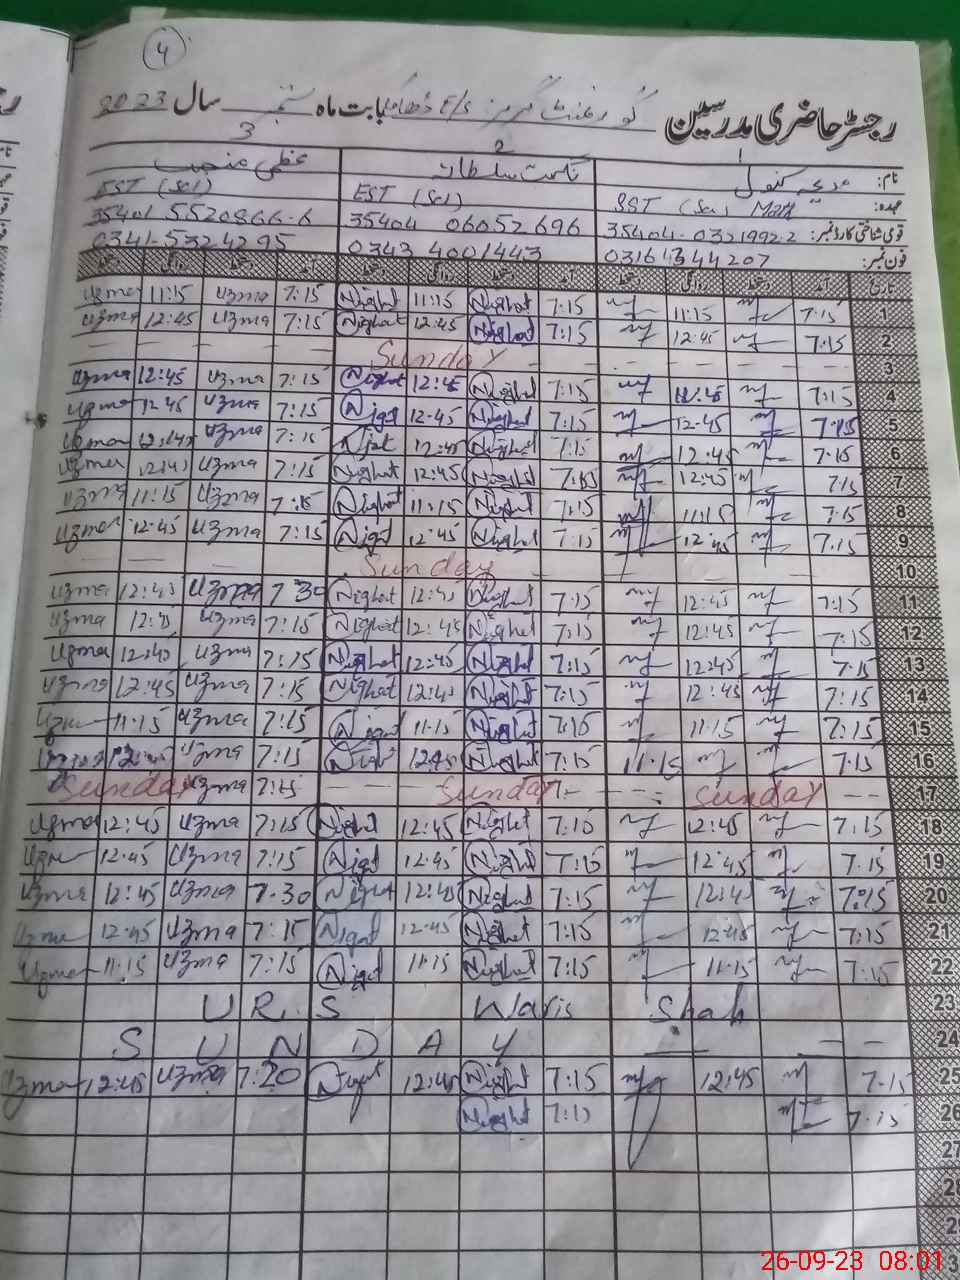 4
رجسٹر حاضری مدرسین گورنمنٹ گرلز E/S بابت ماہ ستمبر سال 2023
نام: 1 مدیحہ کنول 2 نگہت سلطانہ 3 عظمیٰ
عہدہ: SST (Sci) Math EST (Sci) EST (Sci)
قومی شناختی کارڈ نمبر: 35404-0321992-2 35404 06052696 35401 5520866-6
فون نمبر: 0343 4001443 0341-5324295
تاریخ آمد دستخط روانگی دستخط آمد دستخط روانگی دستخط آمد دستخط روانگی دستخط
Uzma 11:15 Uzma 7:15 Nighat 11:15 Nighat 7:15 11:15 7:15 1
Uzma 12:45 Uzma 7:15 Nighat 12:45 Nighat 7:15 12:45 7:15 2
Sunday 3
Uzma 12:45 Uzma 7:15 Nighat 12:45 Nighat 7:15 7:15 4
Uzma 12:45 Uzma 7:15 Nigat 12:45 Nighat 7:15 12:45 7:15 5
Uzma 12:45 Uzma 7:15 Nigat 12:45 Nighat 7:15 12:45 7:15 6
Uzma 12:45 Uzma 7:15 Nighat 12:45 Nighat 7:15 12:45 7:15 7
Uzma 11:15 Uzma 7:15 Nighat 11:15 Nighat 7:15 11:15 7:15 8
Uzma 12:45 Uzma 7:15 Nigat 12:45 Nighat 7:15 12:45 7:15 9
Sunday 10
Uzma 12:45 Uzma 7 30 Nighat 12:45 Nighat 7:15 12:45 7:15 11
Uzma 12:45 Uzma 7:15 Nighat 12:45 Nighat 7:15 12:45 7:15 12
Uzma 12:45 Uzma 7:15 Nighat 12:45 Nighat 7:15 12:45 7:15 13
Uzma 12:45 Uzma 7:15 Nighat 12:45 Nighat 7:15 12:45 7:15 14
Uzma 11:15 Uzma 7:15 Nigat 11:15 Nighat 7:15 11:15 7:15 15
12:45 Uzma 7:15 Nigat 12:45 Nighat 7:15 11:15 7:15 16
Sunday Uzma 7:15 Sunday Sunday 17
Uzma 12:45 Uzma 7:15 Nighat 12:45 Nighat 7:15 12:45 7:15 18
Uzma 12:45 Uzma 7:15 Nigat 12:45 Nighat 7:15 12:45 7:15 19
Uzma 12:45 Uzma 7.30 Nigat 12:45 Nighat 7:15 12:45 7:15 20
Uzma 12:45 Uzma 7:15 Nigat 12:45 Nighat 7:15 12:45 7:15 21
Uzma 11:15 Uzma 7:15 Nigat 11:15 Nighat 7:15 11:15 7:15 22
URS Waris Shah 23
SUNDAY 24
Uzma 12:45 Uzma 7:20 Nigat 12:45 Nighat 7:15 12:45 7:15 25
Nighat 7:15 7:15 26
27
28
26-09-23 08:01